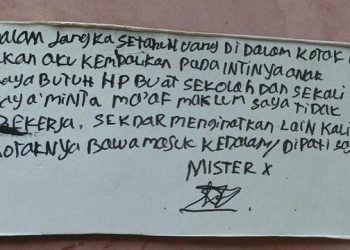 DALAM JANGKA SETAHUN UANG DI DALAM KOTAK
AKAN AKU KEMBALIKAN PADA INTINYA ANAK
SAYA BUTUH HP BUAT SEKOLAH DAN SEKALI
SAYA MINTA MA'AF MAKLUM SAYA TIDAK
BEKERJA. SEKDAR MENGINATKAN LAIN KALI
KOTAKNYA BAWA MASUK KEDALAM/DIPATI
MISTER X